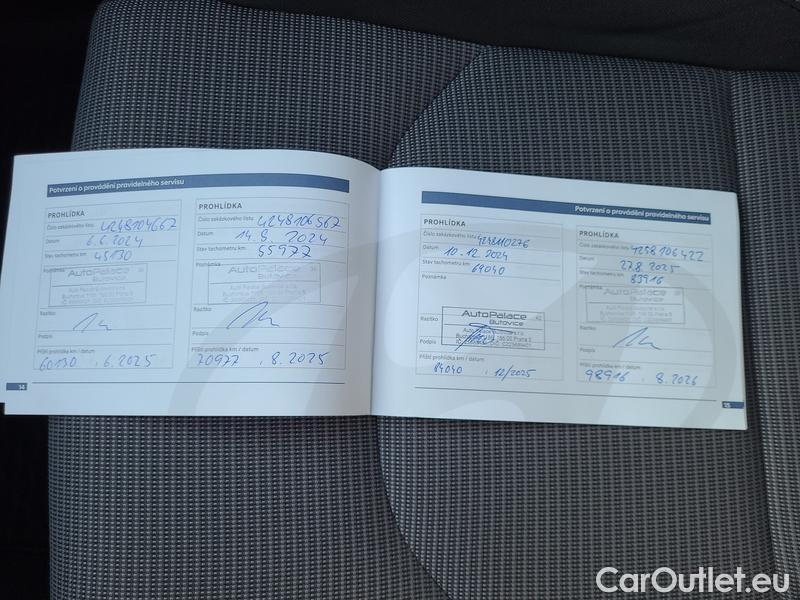 Potvrzení o provádění pravidelného servisu
PROHLÍDKA
Číslo zakázkového listu 4248104667
Datum 6.6.2024
Stav tachometru km 45130
Poznámka
AutoPalace
Butovice
Razítko
Podpis
Příští prohlídka km / datum
60130 . 6.2025
14
PROHLÍDKA
Číslo zakázkového listu 4248106567
Datum 14.8.2024
Stav tachometru km 55977
Poznámka
AutoPalace
Butovice
Razítko
Podpis
Příští prohlídka km / datum
70977 . 8.2025
Potvrzení o provádění pravidelného servisu
PROHLÍDKA
Číslo zakázkového listu 4248110276
Datum 10.12.2024
Stav tachometru km 69040
Poznámka
AutoPalace
Butovice
Razítko
Podpis
Příští prohlídka km / datum
84040 . 12/2025
PROHLÍDKA
Číslo zakázkového listu 4258106422
Datum 27.8.2025
Stav tachometru km 83916
Poznámka
AutoPalace
Butovice
Razítko
Podpis
Příští prohlídka km / datum
98916 . 8.2026
15
CarOutlet.eu